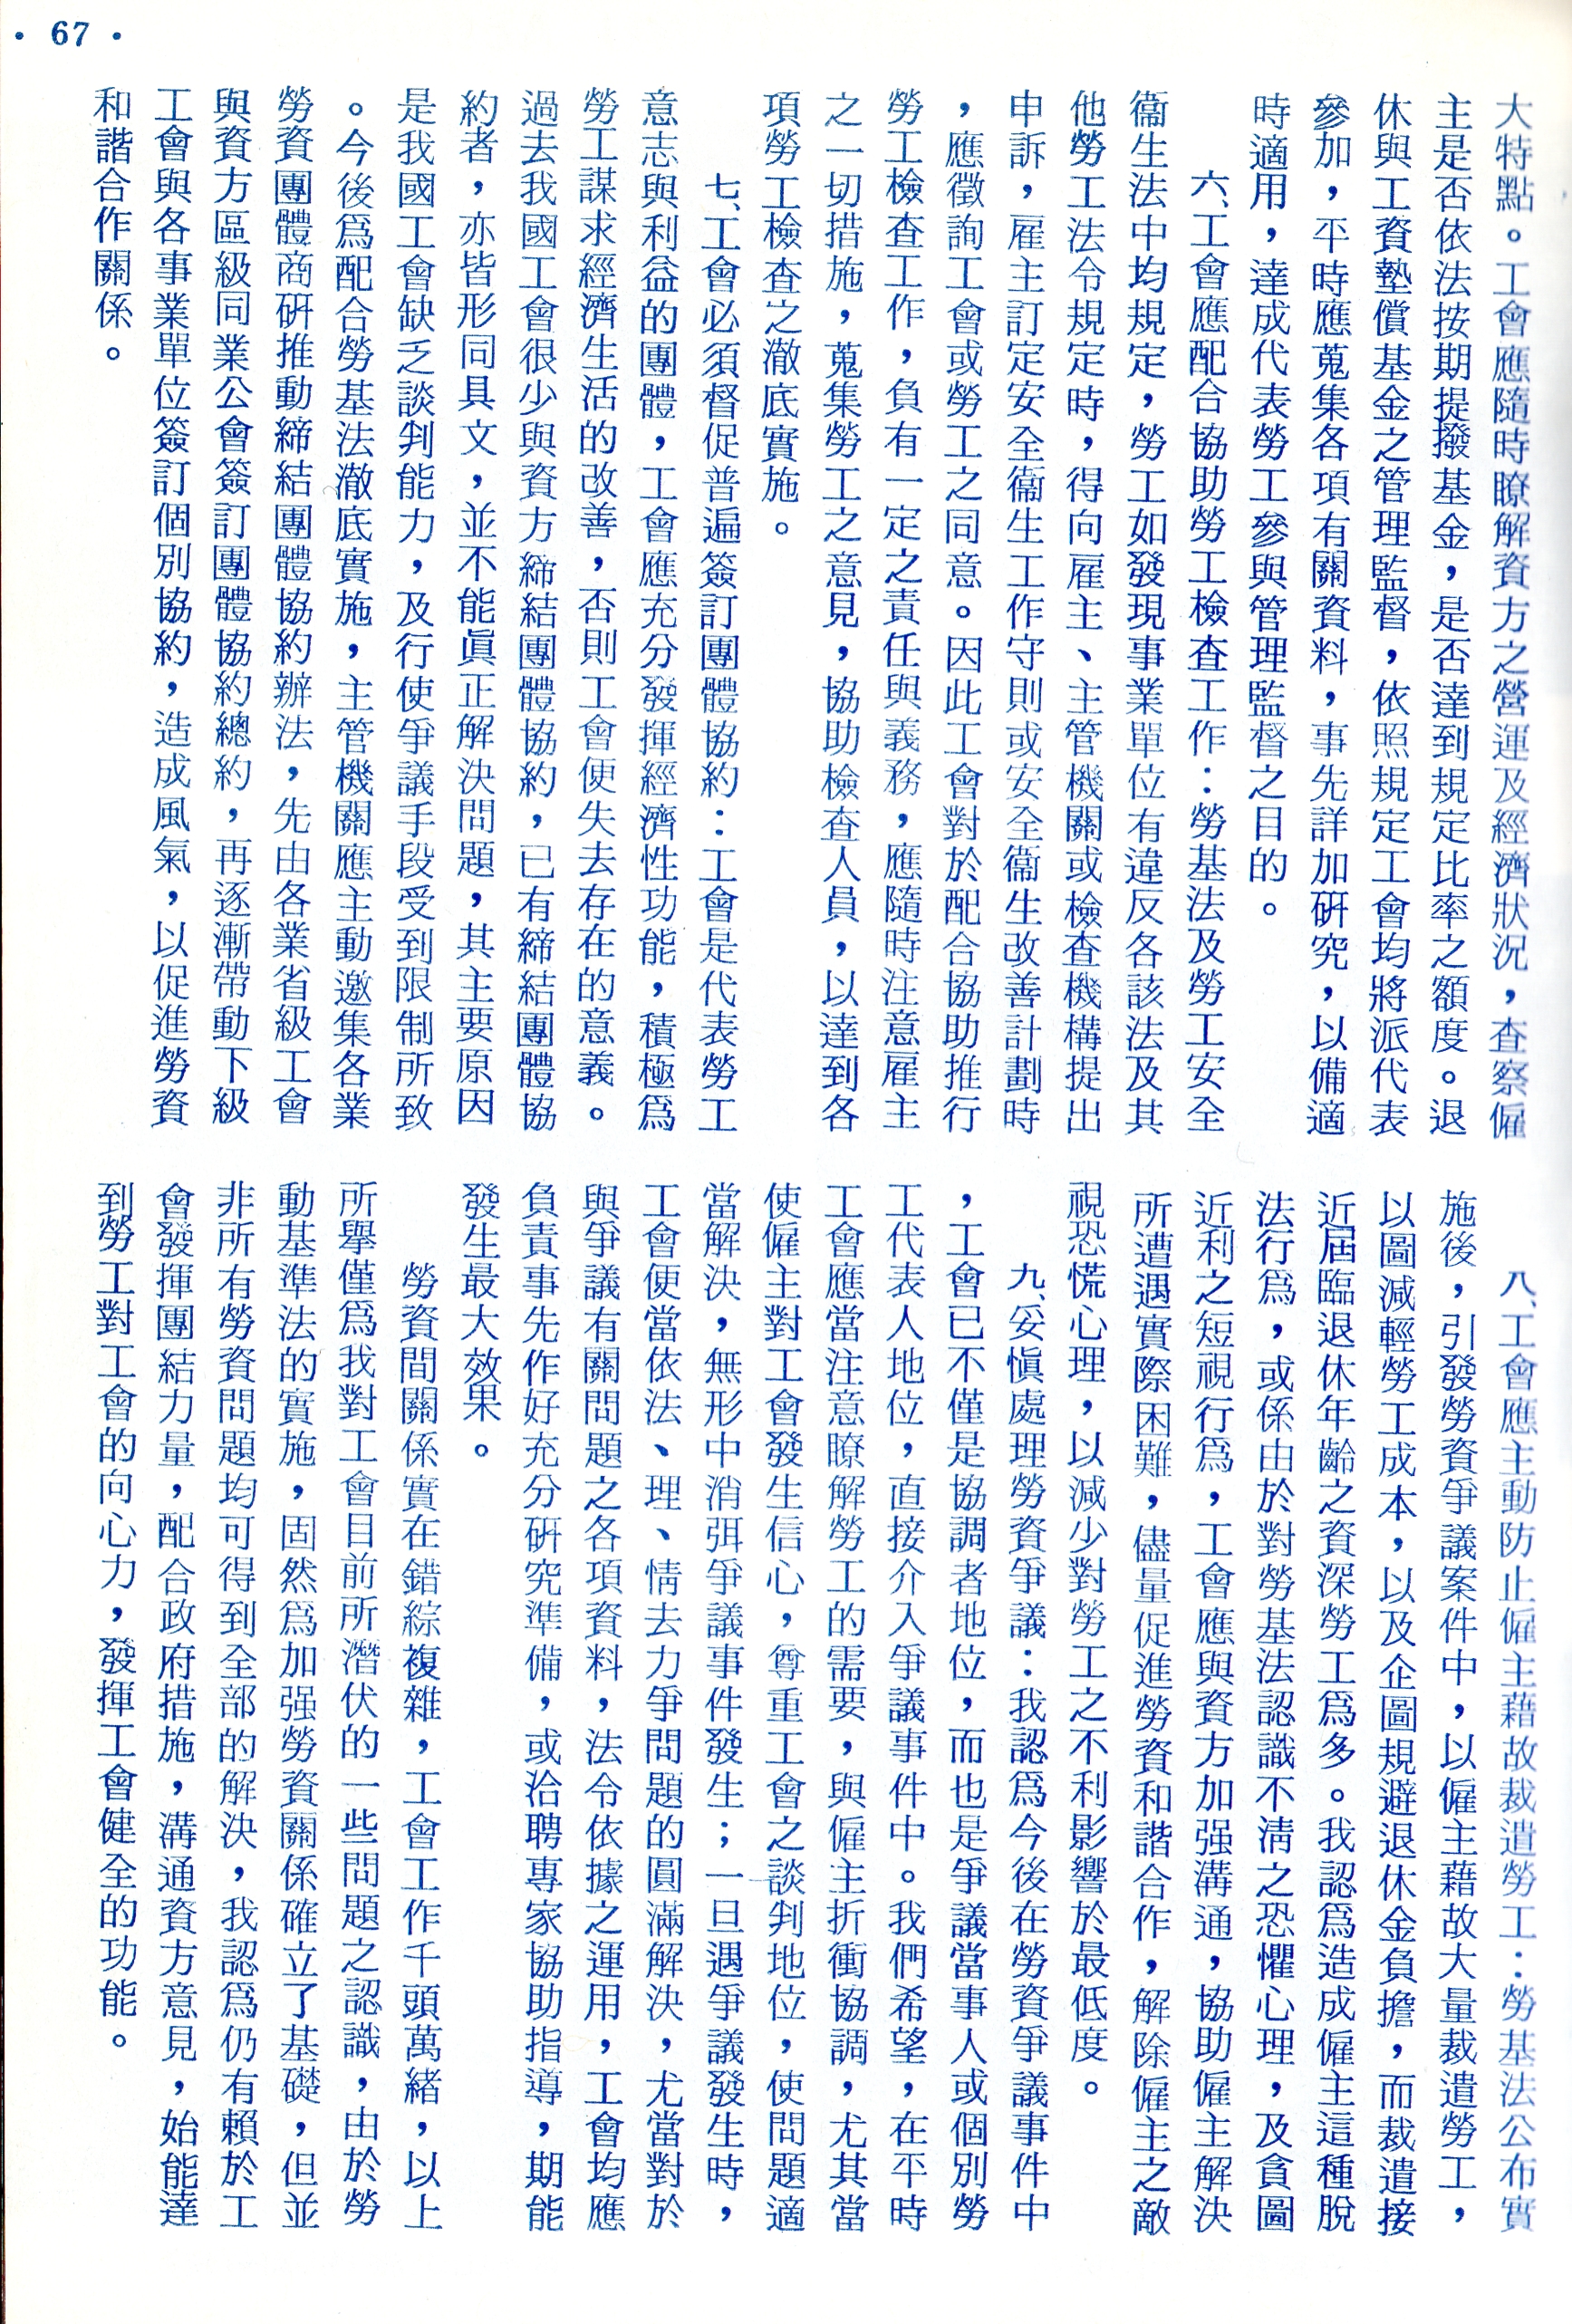 • 67 •
大特點。工會應隨時瞭解資方之營運及經濟狀況，查察僱
主是否依法按期提撥基金，是否達到規定比率之額度。退
休與工資墊償基金之管理監督，依照規定工會均將派代表
參加，平時應蒐集各項有關資料，事先詳加研究，以備適
時適用，達成代表勞工參與管理監督之目的。
六、工會應配合協助勞工檢查工作：勞基法及勞工安全
衞生法中均規定，勞工如發現事業單位有違反各該法及其
他勞工法令規定時，得向雇主、主管機關或檢查機構提出
申訴，雇主訂定安全衞生工作守則或安全衞生改善計劃時
，應徵詢工會或勞工之同意。因此工會對於配合協助推行
勞工檢查工作，負有一定之責任與義務，應隨時注意雇主
之一切措施，蒐集勞工之意見，協助檢查人員，以達到各
項勞工檢查之澈底實施。
七、工會必須督促普遍簽訂團體協約：工會是代表勞工
意志與利益的團體，工會應充分發揮經濟性功能，積極爲
勞工謀求經濟生活的改善，否則工會便失去存在的意義。
過去我國工會很少與資方締結團體協約，已有締結團體協
約者，亦皆形同具文，並不能眞正解決問題，其主要原因
是我國工會缺乏談判能力，及行使爭議手段受到限制所致
。今後爲配合勞基法澈底實施，主管機關應主動邀集各業
勞資團體商研推動締結團體協約辦法，先由各業省級工會
與資方區級同業公會簽訂團體協約總約，再逐漸帶動下級
工會與各事業單位簽訂個別協約，造成風氣，以促進勞資
和諧合作關係。
八、工會應主動防止僱主藉故裁遣勞工：勞基法公布實
施後，引發勞資爭議案件中，以僱主藉故大量裁遣勞工，
以圖減輕勞工成本，以及企圖規避退休金負擔，而裁遣接
近屆臨退休年齡之資深勞工爲多。我認爲造成僱主這種脫
法行爲，或係由於對勞基法認識不淸之恐懼心理，及貪圖
近利之短視行爲，工會應與資方加强溝通，協助僱主解決
所遭遇實際困難，儘量促進勞資和諧合作，解除僱主之敵
視恐慌心理，以減少對勞工之不利影響於最低度。
九、妥愼處理勞資爭議：我認爲今後在勞資爭議事件中
，工會已不僅是協調者地位，而也是爭議當事人或個別勞
工代表人地位，直接介入爭議事件中。我們希望，在平時
工會應當注意瞭解勞工的需要，與僱主折衝協調，尤其當
使僱主對工會發生信心，尊重工會之談判地位，使問題適
當解決，無形中消弭爭議事件發生；一旦遇爭議發生時，
工會便當依法、理、情去力爭問題的圓滿解決，尤當對於
與爭議有關問題之各項資料，法令依據之運用，工會均應
負責事先作好充分研究準備，或洽聘專家協助指導，期能
發生最大效果。
勞資間關係實在錯綜複雜，工會工作千頭萬緒，以上
所舉僅爲我對工會目前所潛伏的一些問題之認識，由於勞
動基準法的實施，固然爲加强勞資關係確立了基礎，但並
非所有勞資問題均可得到全部的解決，我認爲仍有賴於工
會發揮團結力量，配合政府措施，溝通資方意見，始能達
到勞工對工會的向心力，發揮工會健全的功能。